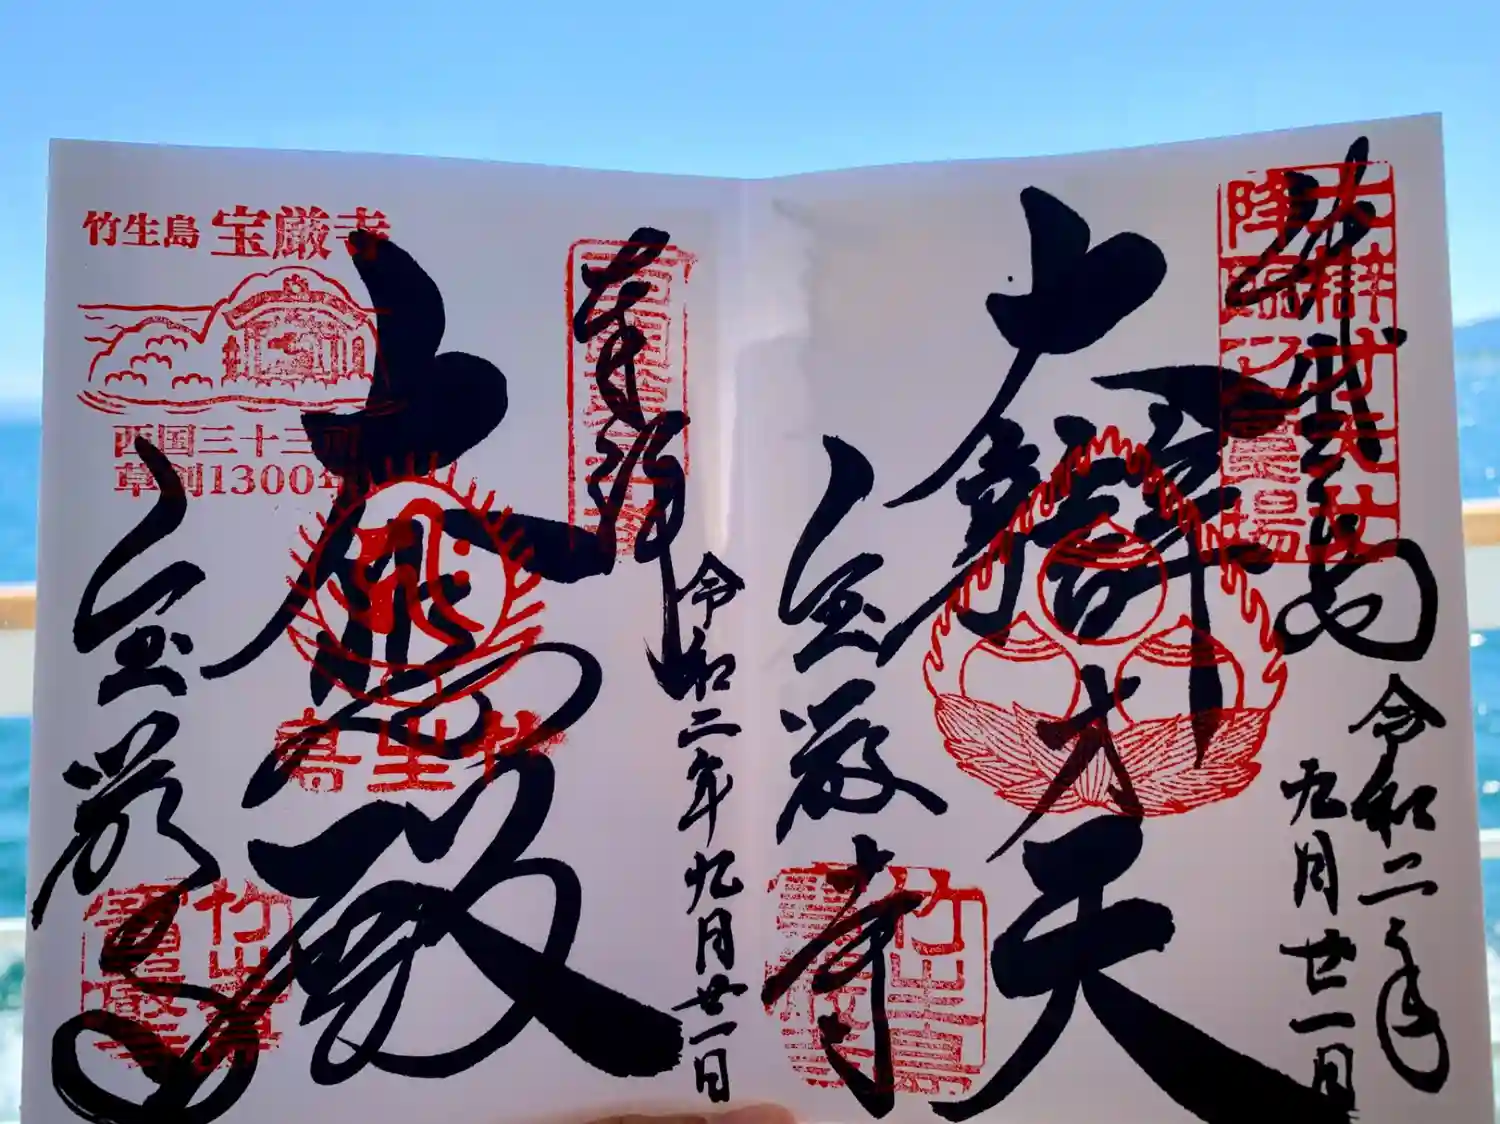 大辯才天女
降臨之霊場
令和二年
九月廿一日
大辯才天
宝厳寺
竹生島
寶嚴寺
奉拝
令和二年九月廿一日
大悲殿
竹生島
竹生島 宝厳寺
西国三十三所
草創1300年
宝厳寺
竹生島
寶嚴寺